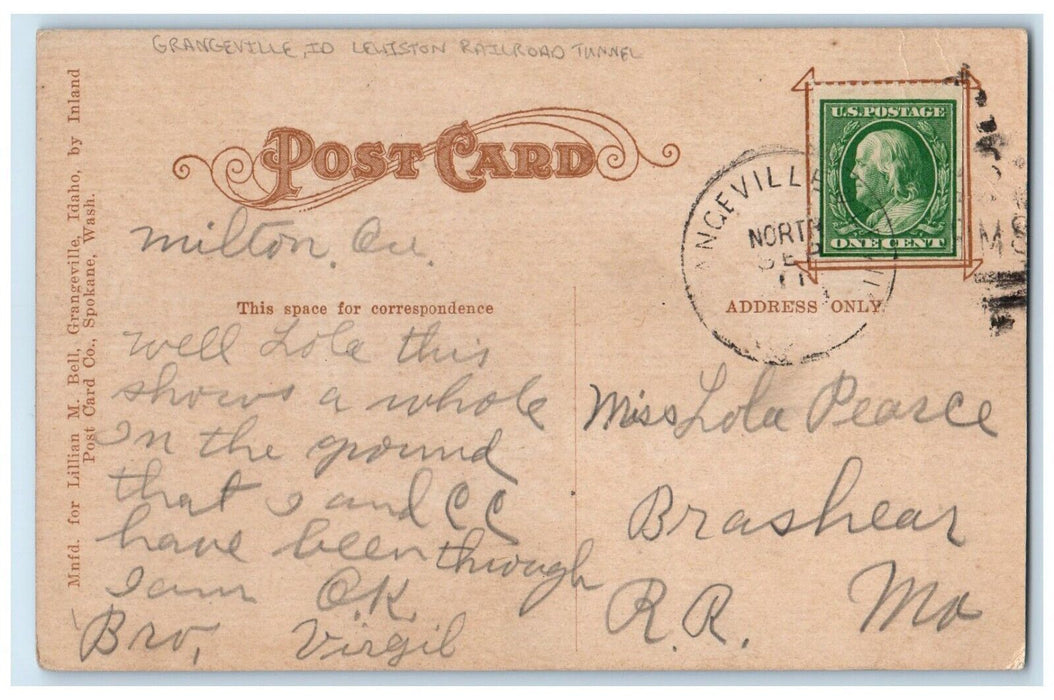 GRANGEVILLE, ID LEWISTON RAILROAD TUNNEL
Mnfd. for Lillian M. Bell, Grangeville, Idaho, by Inland
Post Card Co., Spokane, Wash.
POST CARD
U.S. POSTAGE
ONE CENT
ANGEVILLE
NORTH
SEP
milton,
This space for correspondence
ADDRESS ONLY.
well Lola this
shows a whole
in the ground
that I and CC
have been through
I am O.K.
Bro, Virgil
Miss Lola Pearce
Brashear
R.R. Mo